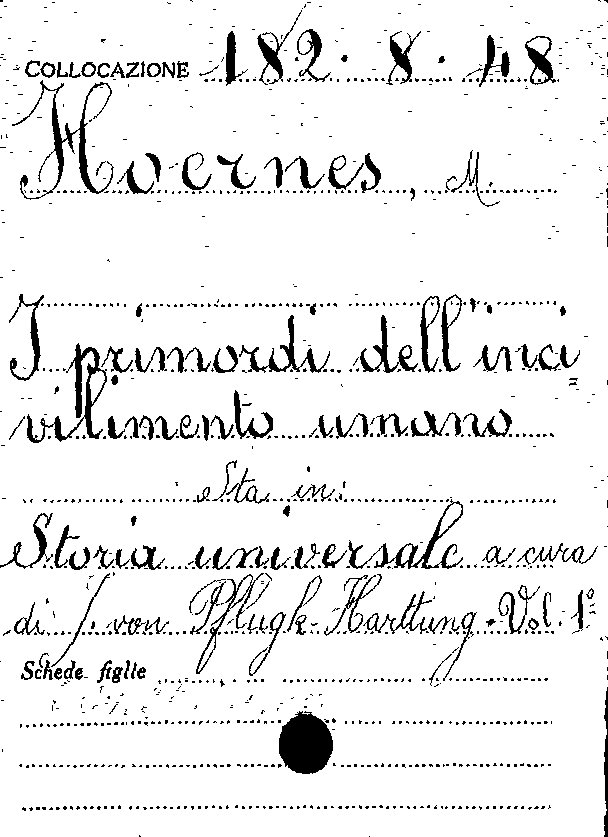 COLLOCAZIONE 182. 8. 48
Hoernes, M.
I primordi dell'inci=
vilimento umano
Sta in:
Storia universale a cura
di J. von Pflugk-Harttung - Vol. 1°
Schede figlie